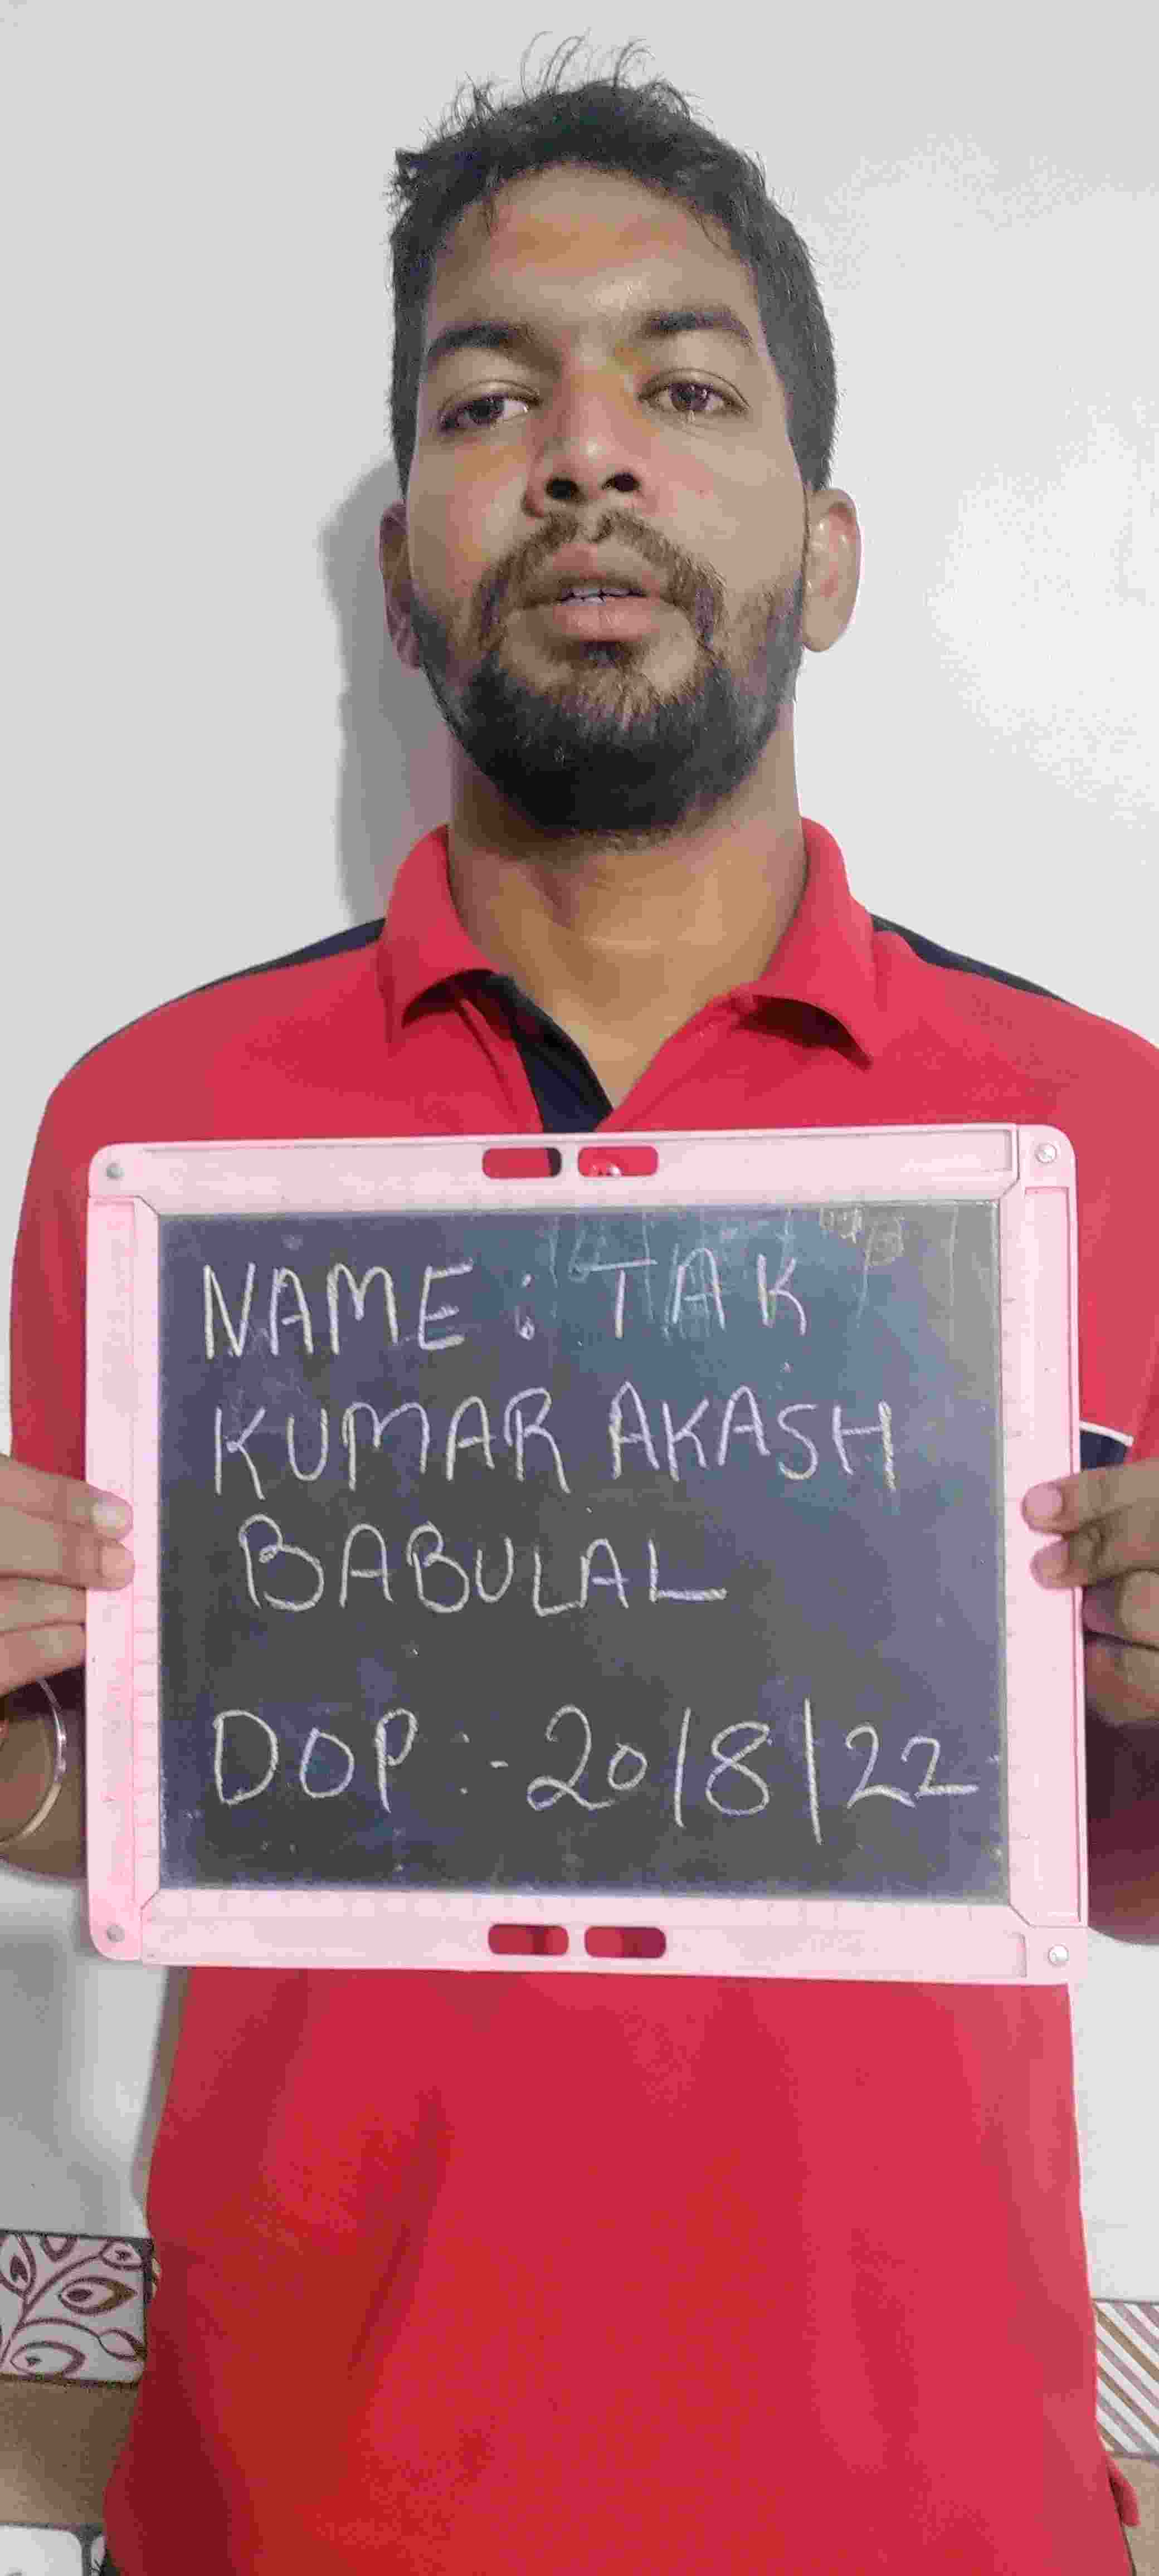 NAME : TAK
KUMAR AKASH
BABULAL
DOP :- 20/8/22